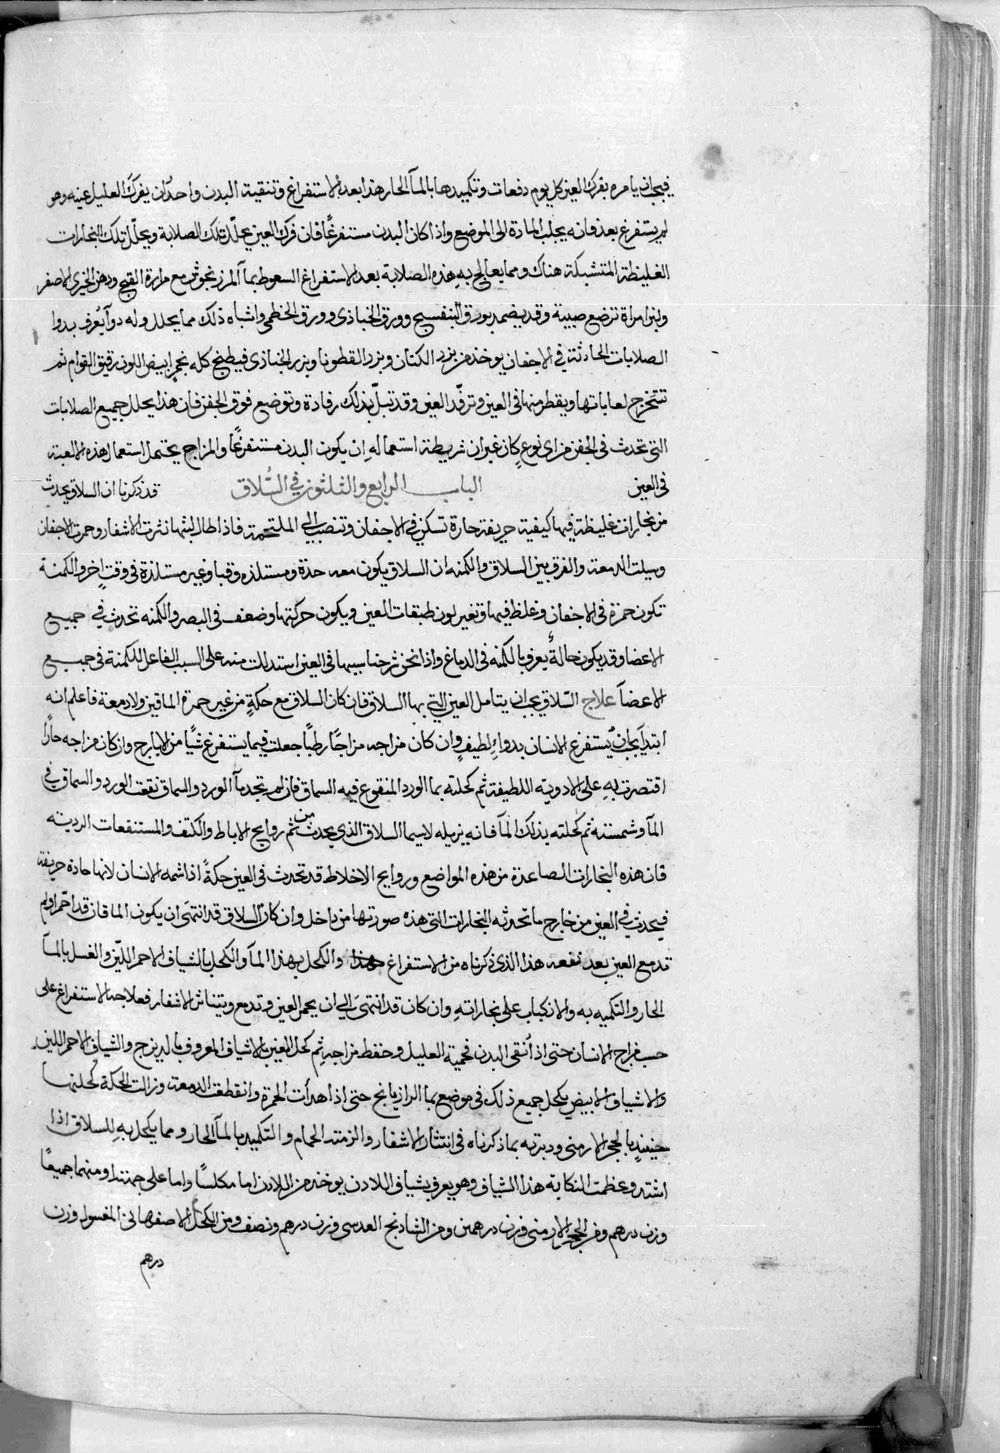 فيجب ان يامره بفرك العين كل يوم دفعات وتكميدها بالمآ الحار هذا بعد الاستفراغ وتنقية البدن واحذر ان يفرك العليل عينه وهو
لم يستفرغ بعد فانه يجلب المادة الى الموضع واذا كان البدن مستفرغًا فان فرك العين يحلّل تلك الصلابة ويحلّل تلك البخارات
الغليظة المتشبكة هناك ومما يعالج به هذه الصلابة بعد الاستفراغ السعوط بمآ المرزنجوش مع مرارة القبج ودهن الخيري الاصفر
ولبن امراة ترضع صبية وقد يضمد بورق البنفسج وورق الخبازى وورق الخطمى واشباه ذلك مما يحلل وله دوآ يُعرف بدوا
الصلابات الحادثة في الاجفان يوخذ من بزر الكتان وبزر القطونا وبزر الخبازى فيطبخ كله بخمر ابيض اللون رقيق القوام ثم
تستخرج لعاباتها ويقطر منها في العين وترفّد العين وقد تبلّ بذلك رفادة وتوضع فوق الجفن فان هذا يحلل جميع الصلابات
التى تحدث في الجفن من اي نوع كان غير ان شريطة استعماله ان يكون البدن مستفرغًا والمزاج يحتمل استعمال هذه الالعبة
فى العين الباب الرابع والثلثون في السُلاق قد ذكرنا ان السلاق يحدث
من بخارات غليظة فيها كيفية حريفة حارة تسكن في الاجفان وتنصب الى الملتحمة فاذا طال لبثها نثرت الاشفار وحمرت الاجفان
وسيلت الدمعة والفرق بين السلاق والكمنه ان السلاق يكون معه حدة ومستلذه وقتا وغير مستلذة فى وقت اخر والكمنة
تكون حمرة في الاجفان وغلظ فيها وتغير لون طبقات العين ويكون حركتها وضعف فى البصر والكمنه تحدث في جميع
الاعضا وقد يكون حالةٌ يعرف بالكمنه فى الدماغ واذا نحن شرحنا سببها فى العين استدللت منه على السبب الفاعل للكمنة في جميع
الاعضآ علاج السّلاق يجب ان يتامل العين التي بها السلاق فان كان السلاق مع حكةٍ من غير حمرة الماقين ولا دمعة فاعلم انه
ابتدآ يجب ان يُستفرغ الانسان بدوآءٍ لطيف وان كان مزاجه مزاجًا رطبًا جعلت فيما يستفرغ شيًا من الايارج وان كان مزاجه حارًا
اقتصرت به على الادوية اللطيفة ثم كحلته بما الورد المنقوع فيه السماق فان لم تجد مآ الورد والسماق نقعت الورد والسماق في
المآ وشمسته ثم كحلته بذلك المآ فانه يزيله لاسيما السلاق الذي يحدث من شم روايح الاباط والكنف والمستنقعات الرديه
فان هذه البخارات الصاعدة من هذه المواضع وروايح الاخلاط قد تحدث فى العين حكةً اذا شمه الانسان لانها حادة حريفة
فيحدث في العين من خارج ما تحدثه البخارات التى هذه صورتها من داخل وان كان السلاق قد انتهى ان يكون الماقان قد احمّر اولم
تدمع العين بعد نفعه هذا الذى ذكرناه من الاستفراغ والكحل بهذا المآ والكحل بالشياف الاحمر الليّن والغسل بالمآ
الحار والتكميد به والانكباب على بخاراته وان كان قد انتهى الى ان يحمر العين وتدمع ويتناثر الاشفار فعلاجه الاستفراغ على
حسب مزاج الانسان حتى اذا أنقى البدن فحمية العليل وحفظ مزاجه ثم كحل العين بالاشياف المعروف بالديزج والشياف الاحمر اللين
والاشياف الابيض يكحل جميع ذلك فى موضع بما الرازيانج حتى اذا هدأت الحمرة وانقطعت الدمعة وزالت الحكة كحلتها
حينيذٍ بالحجر الارمنى ودبرته بما ذكرناه فى انتثار الاشفار والزمته الحمام والتكميد بالمآ الحار ومما يكحل به للسلاق اذا
اشتد وعظمت النكاية هذا الشياف وهو يعرف بشياف اللادن يوخذ من اللادن اما مكلسًا واما على جهته او منهما جميعًا
وزن درهم ومن الحجر الارمنى وزن درهمين ومن الشادنج العدسى وزن درهم ونصف ومن الكحل الاصفهاني المغسول وزن
درهم